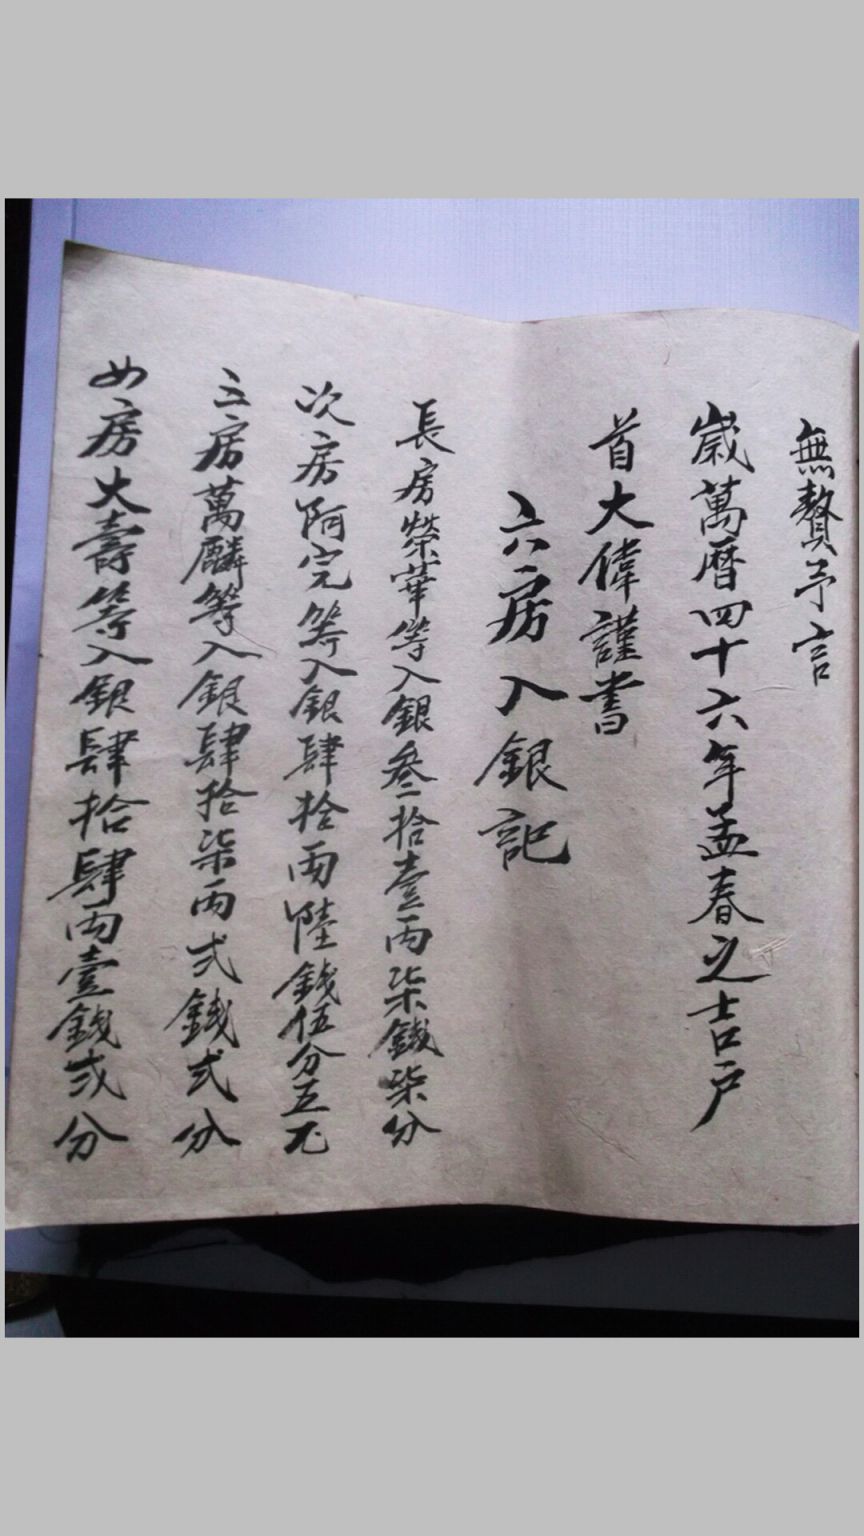 無贅予言
歲萬曆四十六年孟春之吉戶
首大偉謹書
六房入銀記
長房榮華等入銀叁拾壹兩柒錢柒分
次房阿完等入銀肆拾兩陸錢伍分五
三房萬麟等入銀肆拾柒兩弍錢弍分
四房大壽等入銀肆拾肆兩壹錢弍分